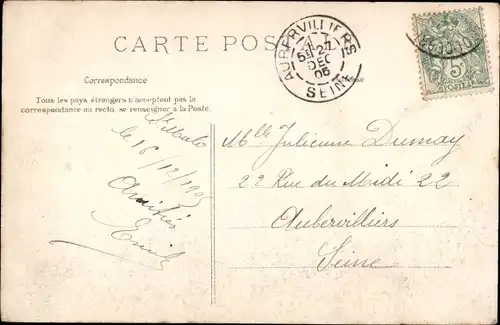 CARTE POS
AUBERVILLIERS
DEC
05
SEINE
5
POSTES
Correspondance
Tous les pays étrangers n'acceptent pas la
correspondance au recto, se renseigner à la Poste.
St Malo
le 16/12/1905
Amitiés
Emile
Mlle Julienne Dumay
22 Rue du Midi 22
Aubervilliers
Seine